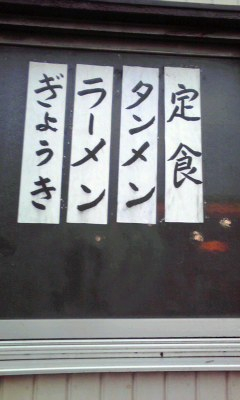 定食
タンメン
ラーメン
ぎょうき